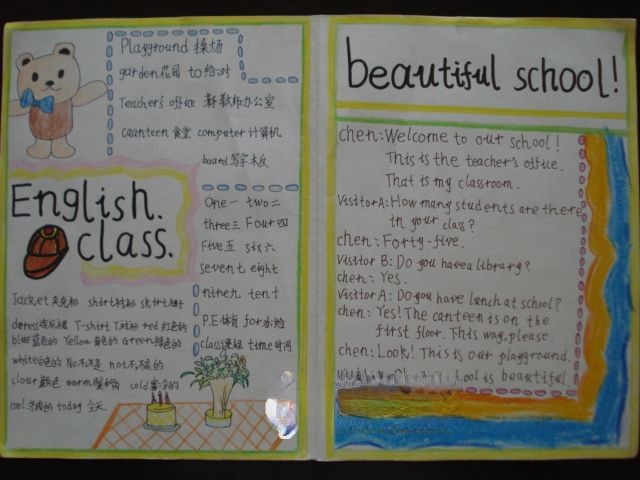 Playground 操场
garden花园 to 给.对
Teacher's office 教师办公室
caanteen 食堂 computer 计算机
board写字木反
English.
class.
One一 two二
three三 Four四
Five五 six六
seven七 eight
nine九 ten十
P.E.体育 for
class课 time时间
Jacket夹克衫 shirt衬衫 skirt
dress连衣裙 T-shirt T恤衫 red 红色的
blue蓝色的 Yellow黄色的 Green绿色的
white白色的 No不,不是 not不,不是的
clour颜色 warm cold寒冷的
cool today 今天
beautiful school!
chen:Welcome to our school!
This is the teacher's office.
That is my classroom.
Visitor A: How many students are there
in your class?
chen: Forty-five.
Visitor B: Do you have a library?
chen: Yes.
Visitor A: Do you have lunch at school?
chen: Yes! The canteen is on the
first floor. This way, please.
chen: Look! This is our playground.
is beautiful